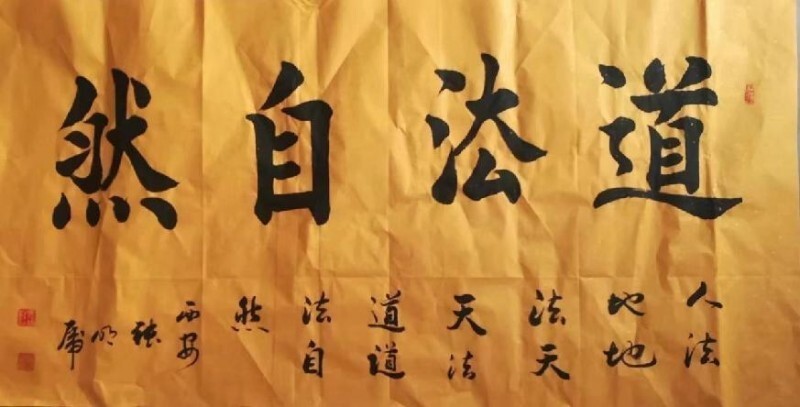 道法自然
人法
地地
法天
天法
道道
法自
然
西安
张
明
虎